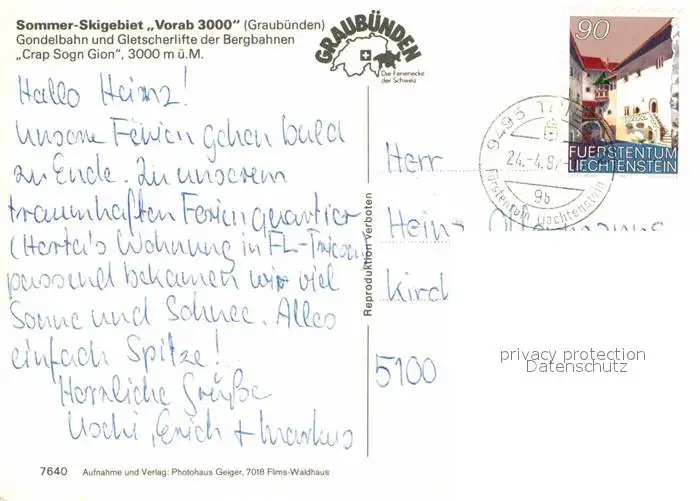 Sommer-Skigebiet „Vorab 3000“ (Graubünden)
Gondelbahn und Gletscherlifte der Bergbahnen
„Crap Sogn Gion“, 3000 m ü.M.
GRAUBÜNDEN
Die Ferienecke
der Schweiz
90
FUERSTENTUM
LIECHTENSTEIN
9495
24.-4.8
9b
Fürstentum Liechtenstein
Hallo Heinz!
Unsere Ferien gehen bald
zu Ende. Zu unserem
traumhaften Ferienquartier
(Herta's Wohnung in FL-Triesen)
passend bekamen wir viel
Sonne und Schnee. Alles
einfach Spitze!
Herzliche Grüße
Uschi, Erich + Markus
Herr
Heinz
Kirch
5100
Reproduktion Verboten
privacy protection
Datenschutz
7640 Aufnahme und Verlag: Photohaus Geiger, 7018 Flims-Waldhaus